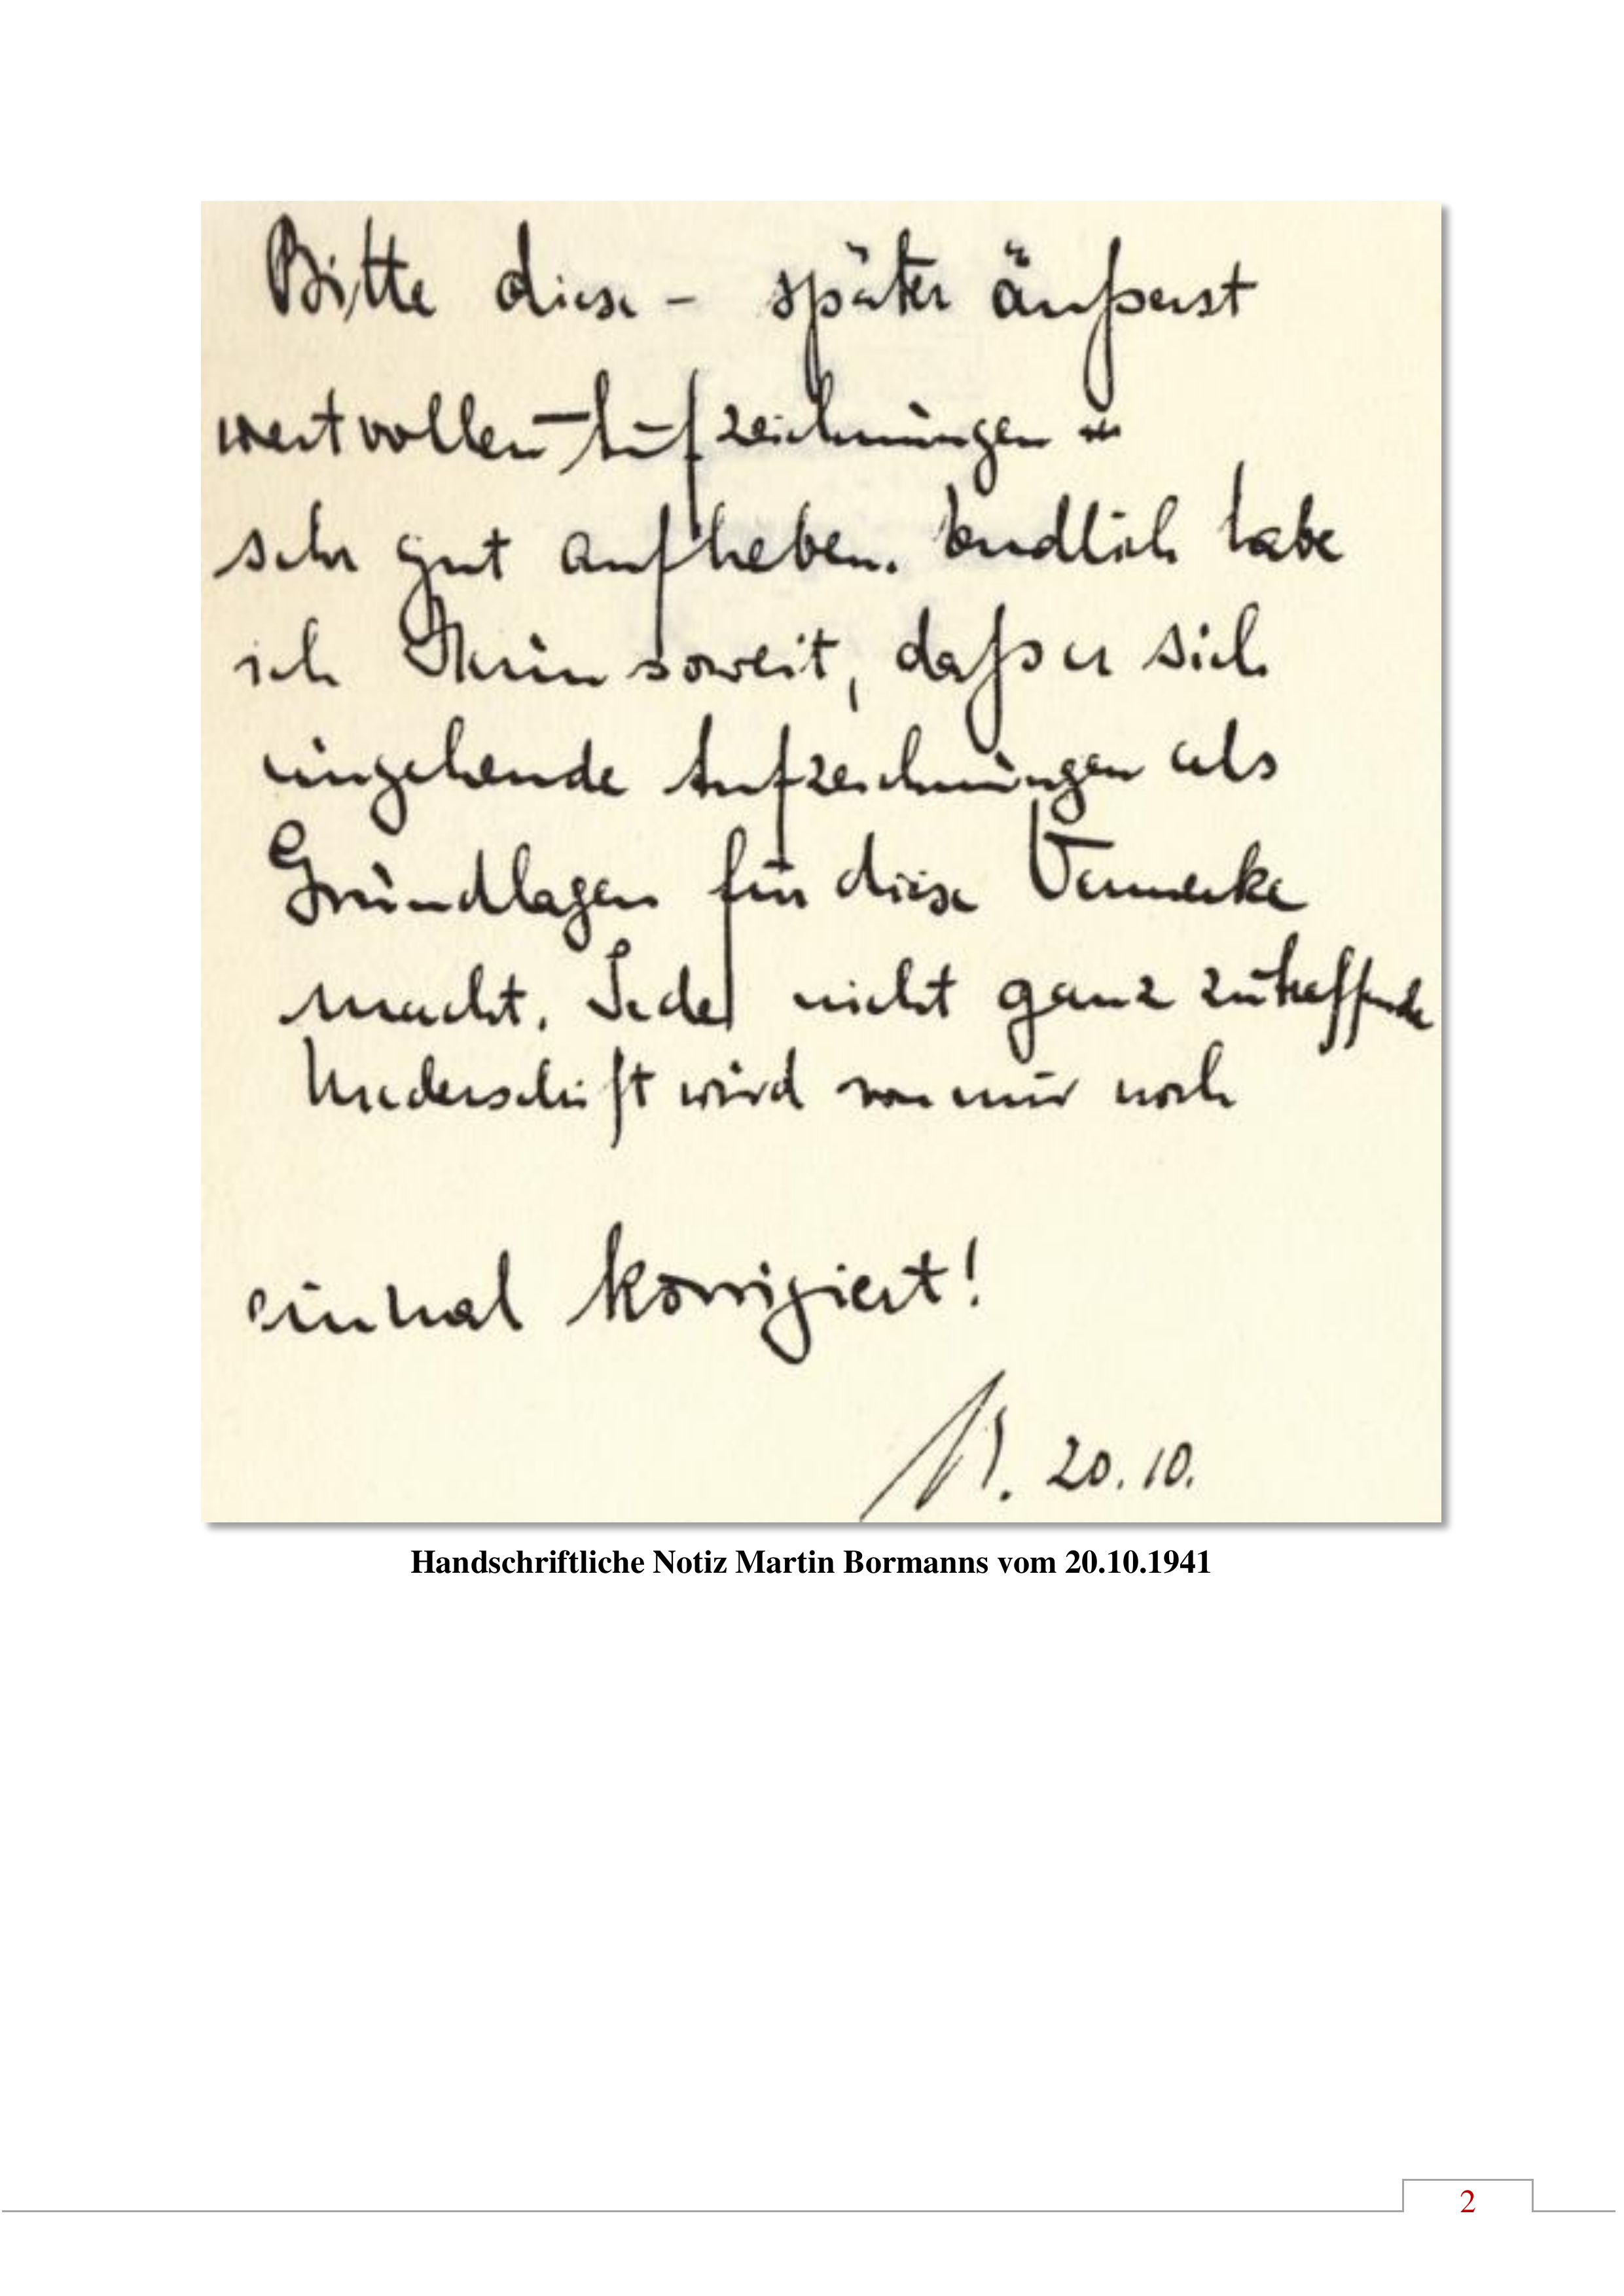 Bitte diese – später äußerst
wertvollen – Aufzeichnungen
sehr gut aufheben. Endlich habe
ich Heim soweit, daß er sich
eingehende Aufzeichnungen als
Grundlagen für diese Vermerke
macht. Jede nicht ganz zutreffende
Niederschrift wird von mir noch
einmal korrigiert!
20.10.
Handschriftliche Notiz Martin Bormanns vom 20.10.1941
2